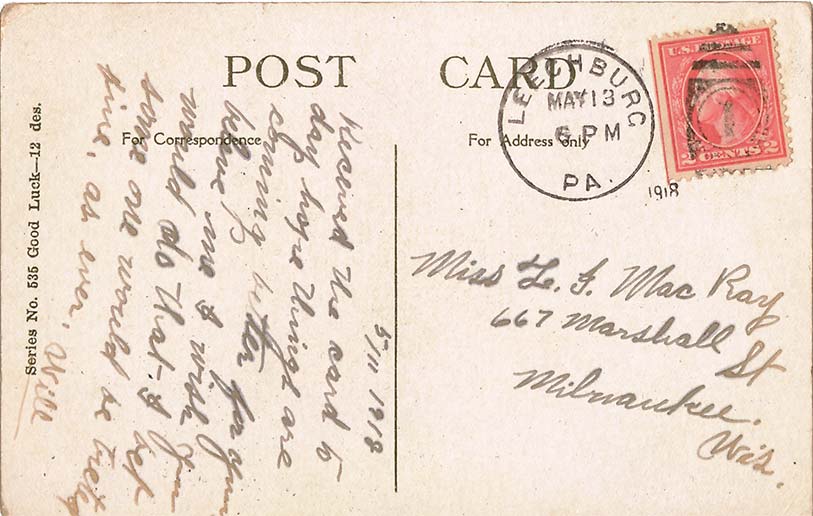 POST CARD
For Correspondence
For Address only
Series No. 535 Good Luck—12 des.
LEECHBURG
MAY 13
6 PM
PA.
U.S. POSTAGE
2 CENTS 2
1918
5/11 1918
day hope things are
coming better for you
me I wish you
would do that I bet
some one would be
time, as ever, Will
Miss L. F. Mac Kay
667 Marshall
St
Milwaukee.
Wis.